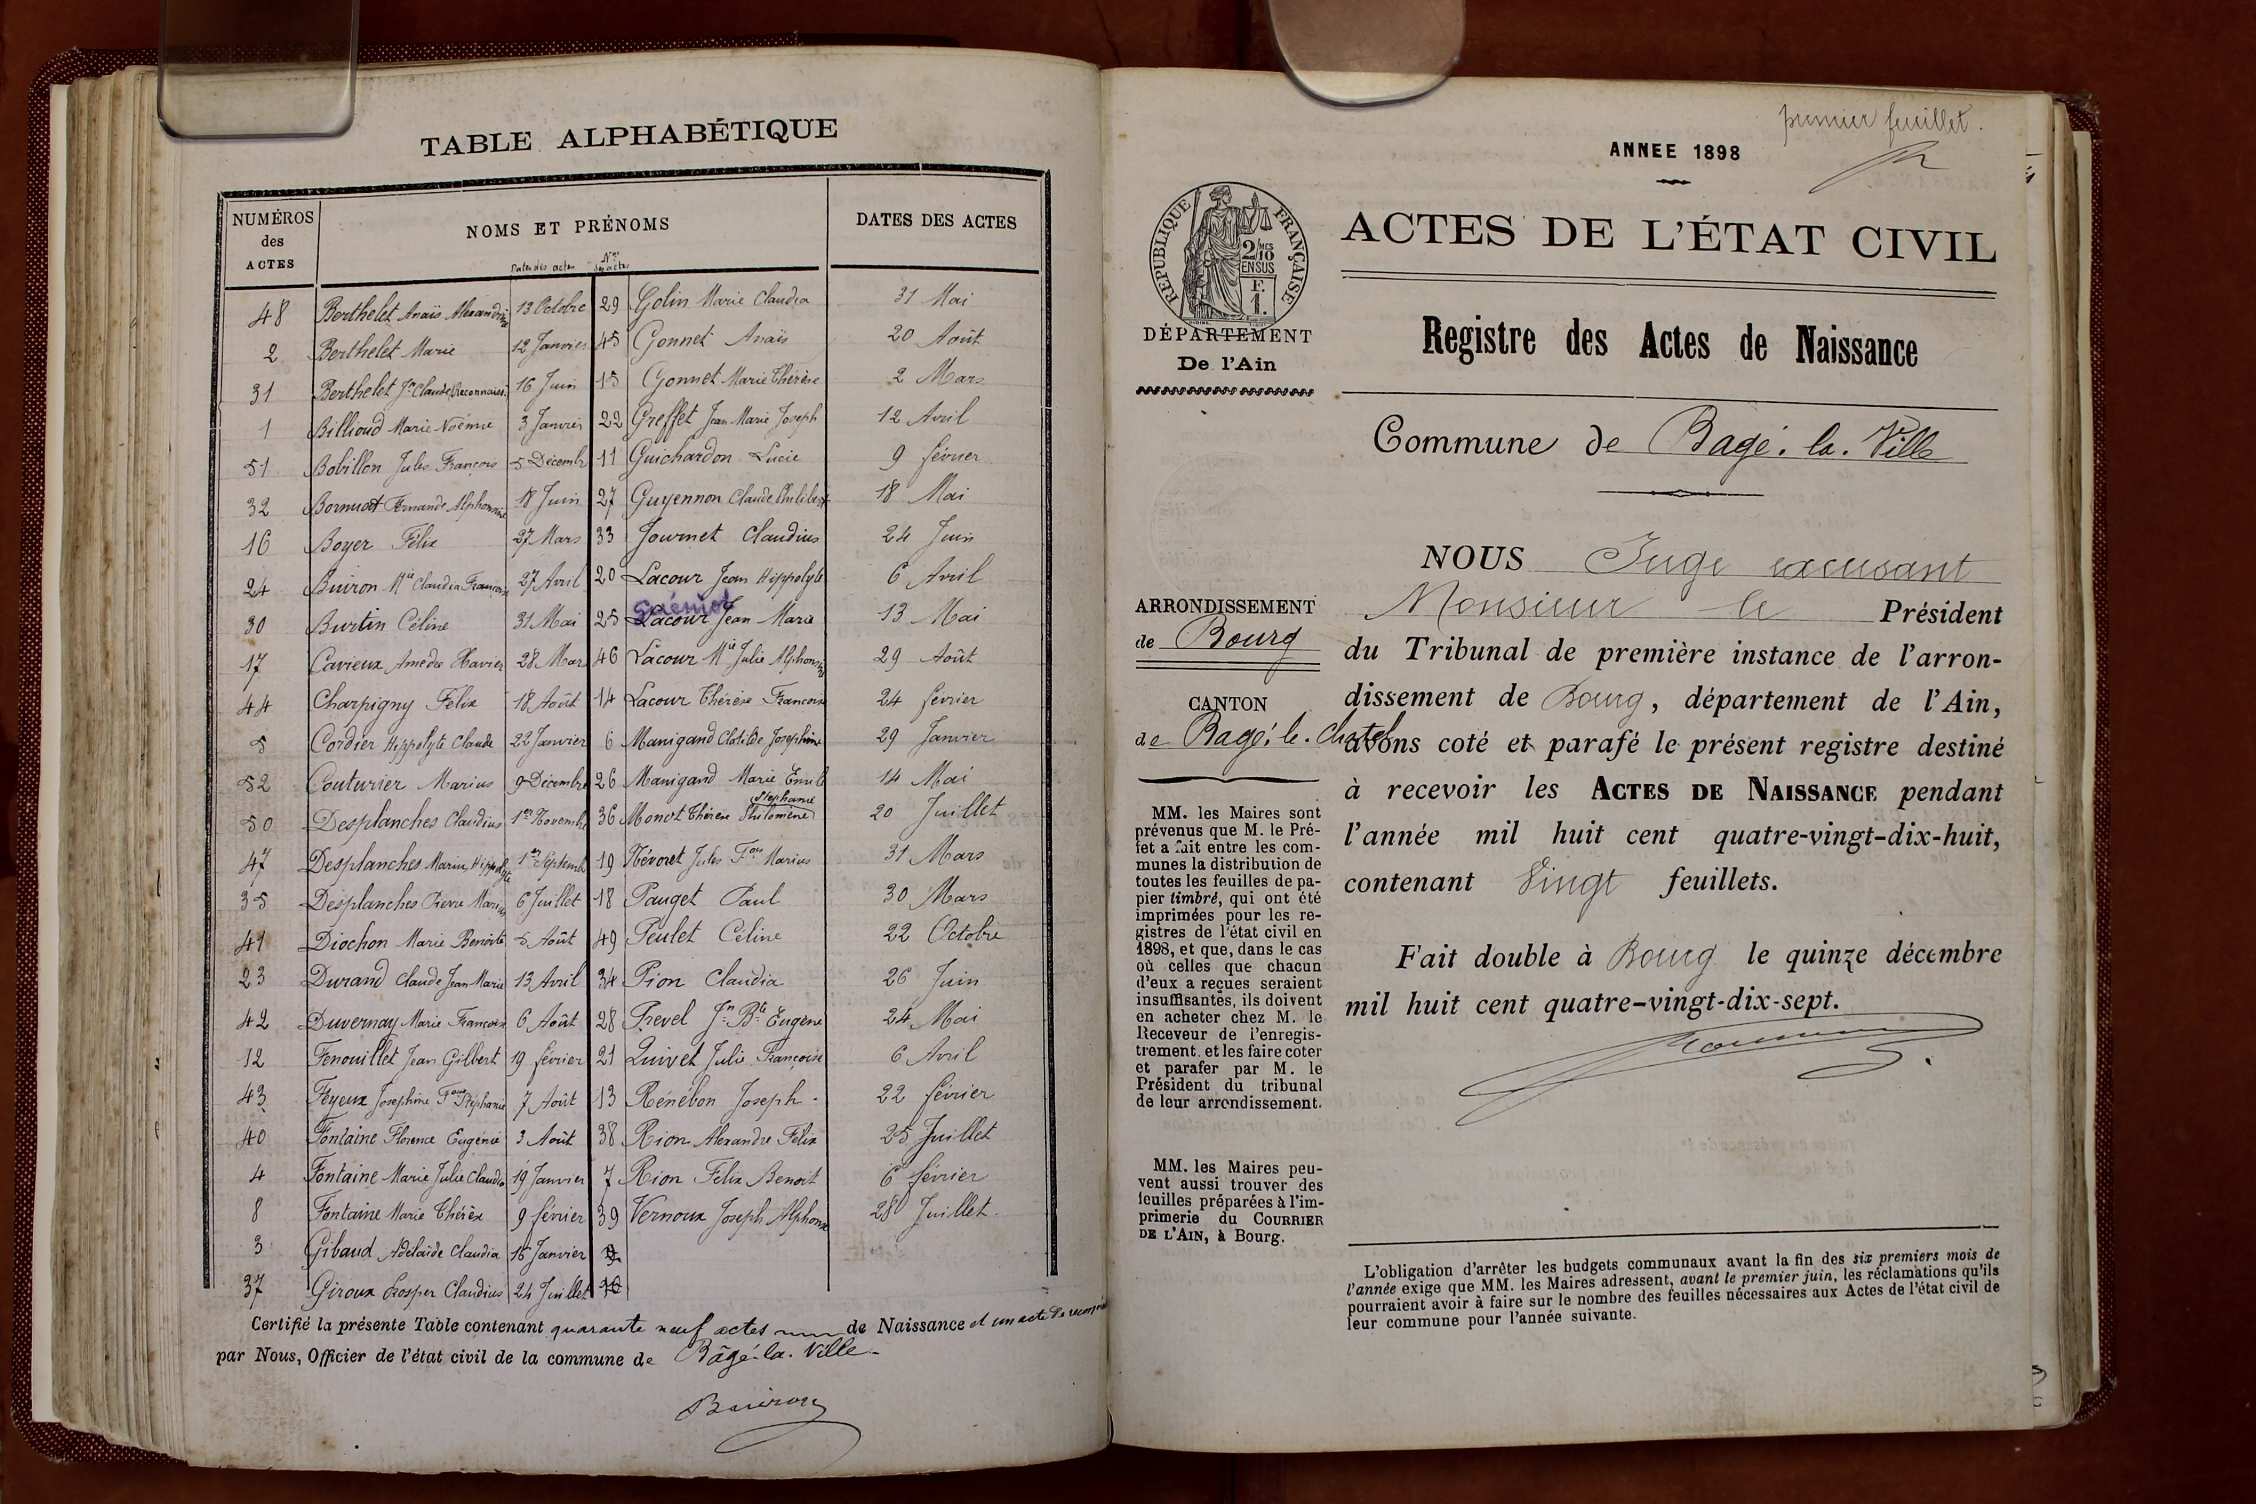 TABLE ALPHABÉTIQUE
NUMÉROS des ACTES
NOMS ET PRÉNOMS
DATES DES ACTES
Dates des actes
Nos des actes
48 Berthelet Anaïs Alexandrine 13 Octobre
2 Berthelet Marie 12 Janvier
31 Berthelet Jn Claude (Reconnaiss.) 16 Juin
1 Billioud Marie Noémie 3 Janvier
51 Bobillon Jules François 5 Décembr
32 Fernande Alphonsine 18 Juin
16 Boyer Félix 27 Mars
24 Buiron Mie Claudia Françoise 27 Avril
30 Burtin Céline 31 Mai
17 Cavieux Amédée Xavier 28 Mar
44 Charpigny Félix 18 Août
5 Cordier Hippolyte Claude 22 Janvier
52 Couturier Marius 9 Décembre
50 Desplanches Claudius 1er Novembr
47 Desplanches Marius Hippolyte 1er Septemb
35 Desplanches Pierre Marius 6 Juillet
41 Diochon Marie Benoite 5 Août
23 Durand Claude Jean Marie 13 Avril
42 Duvernay Marie Françoise 6 Août
12 Fenouillet Jean Gilbert 19 février
43 Feyeux Joséphine Foise Stéphanie 7 Août
40 Fontaine Florence Eugénie 3 Août
4 Fontaine Marie Julie Claudia 19 Janvier
8 Fontaine Marie Thérèse 9 février
3 Gibaud Adélaïde Claudia 15 Janvier
37 Giroux Prosper Claudius 24 Juillet
29 Golin Marie Claudia 31 Mai
45 Gonnet Anaïs 20 Août
15 Gonnet Marie Thérèse 2 Mars
22 Greffet Jean Marie Joseph 12 Avril
11 Guichardon Lucie 9 février
27 Guyennon Claude Philibert 18 Mai
33 Journet Claudius 24 Juin
20 Lacour Jean Hippolyte 6 Avril
25 Lacour Jean Marie 13 Mai
46 Lacour Mie Julie Alphonsine 29 Août
14 Lacour Thérèse Françoise 24 février
6 Manigand Clotilde Joséphine 29 Janvier
26 Manigand Marie Emile 14 Mai
Stéphanie
36 Monot Thérèse Philomène 20 Juillet
19 Névoret Jules Fois Marius 31 Mars
18 Pauget Paul 30 Mars
49 Peulet Céline 22 Octobre
34 Pion Claudia 26 Juin
28 Prevel Jn Bte Eugène 24 Mai
21 Quivet Julie Françoise 6 Avril
13 Rénébon Joseph 22 février
38 Rion Alexandre Félix 25 Juillet
7 Rion Félix Benoit 6 février
39 Vernoux Joseph Alphonse 28 Juillet
Certifié la présente Table contenant quarante neuf actes de Naissance et un acte de
par Nous, Officier de l'état civil de la commune de Bâgé-la-Ville
Buiron
premier feuillet.
ANNEE 1898
RÉPUBLIQUE FRANÇAISE
2/10 MES
EN SUS
F. 1.
DÉPARTEMENT
De l'Ain
ACTES DE L'ÉTAT CIVIL
Registre des Actes de Naissance
Commune de Bagé-la-Ville
ARRONDISSEMENT
de Bourg
CANTON
de Bagé-le-Chatel
MM. les Maires sont
prévenus que M. le Pré-
fet a fait entre les com-
munes la distribution de
toutes les feuilles de pa-
pier timbré, qui ont été
imprimées pour les re-
gistres de l'état civil en
1898, et que, dans le cas
où celles que chacun
d'eux a reçues seraient
insuffisantes, ils doivent
en acheter chez M. le
Receveur de l'enregis-
trement, et les faire coter
et parafer par M. le
Président du tribunal
de leur arrondissement.
MM. les Maires peu-
vent aussi trouver des
feuilles préparées à l'im-
primerie du COURRIER
DE L'AIN, à Bourg.
NOUS Juge excusant
Monsieur le Président
du Tribunal de première instance de l'arron-
dissement de Bourg, département de l'Ain,
avons coté et parafé le présent registre destiné
à recevoir les ACTES DE NAISSANCE pendant
l'année mil huit cent quatre-vingt-dix-huit,
contenant Vingt feuillets.
Fait double à Bourg le quinze décembre
mil huit cent quatre-vingt-dix-sept.
L'obligation d'arrêter les budgets communaux avant la fin des six premiers mois de
l'année exige que MM. les Maires adressent, avant le premier juin, les réclamations qu'ils
pourraient avoir à faire sur le nombre des feuilles nécessaires aux Actes de l'état civil de
leur commune pour l'année suivante.